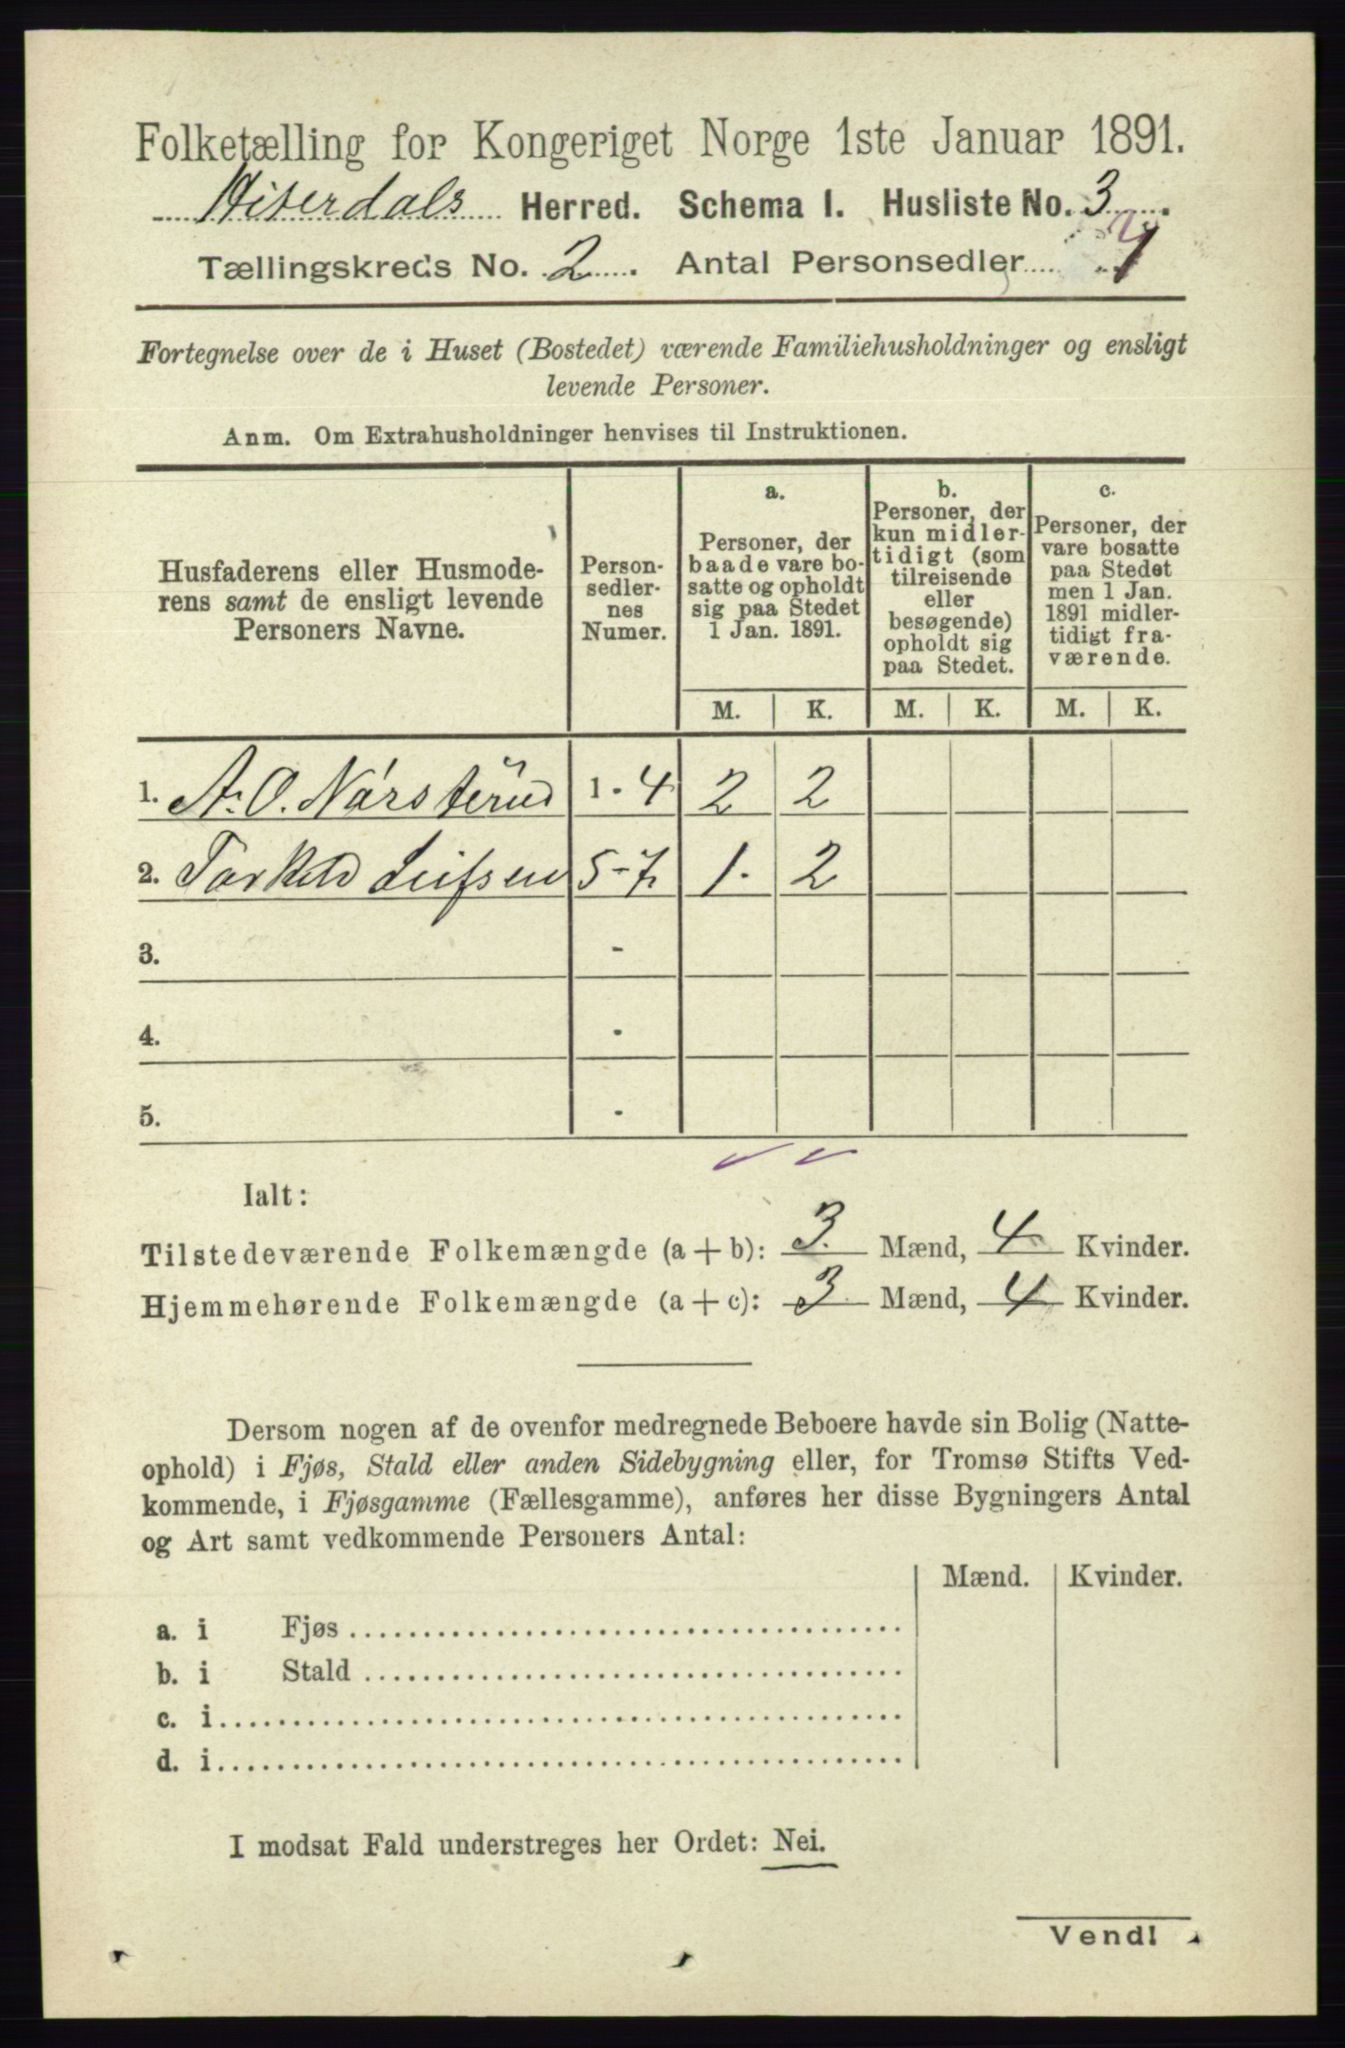 Folketælling for Kongeriget Norge 1ste Januar 1891.
Hiterdals Herred. Schema I. Husliste No. 3.
Tællingskreds No. 2. Antal Personsedler 7
Fortegnelse over de i Huset (Bostedet) værende Familiehusholdninger og ensligt
levende Personer.
Anm. Om Extrahusholdninger henvises til Instruktionen.
Husfaderens eller Husmode-
rens samt de ensligt levende
Personers Navne.
Person-
sedler-
nes
Numer.
a.
Personer, der
baade vare bo-
satte og opholdt
sig paa Stedet
1 Jan. 1891.
b.
Personer, der
kun midler-
tidigt (som
tilreisende
eller
besøgende)
opholdt sig
paa Stedet.
c.
Personer, der
vare bosatte
paa Stedet
men 1 Jan.
1891 midler-
tidigt fra-
værende.
M. K. M. K. M. K.
1. A. O. Nørsterud 1 - 4 2 2
2. Torkild Leifsen 5-7 1. 2
3. -
4. -
5. -
Ialt:
Tilstedeværende Folkemængde (a + b): 3. Mænd, 4 Kvinder.
Hjemmehørende Folkemængde (a + c): 3. Mænd, 4 Kvinder.
Dersom nogen af de ovenfor medregnede Beboere havde sin Bolig (Natte-
ophold) i Fjøs, Stald eller anden Sidebygning eller, for Tromsø Stifts Ved-
kommende, i Fjøsgamme (Fællesgamme), anføres her disse Bygningers Antal
og Art samt vedkommende Personers Antal:
Mænd. Kvinder.
a. i Fjøs
b. i Stald
c. i
d. i
I modsat Fald understreges her Ordet: Nei.
Vend!